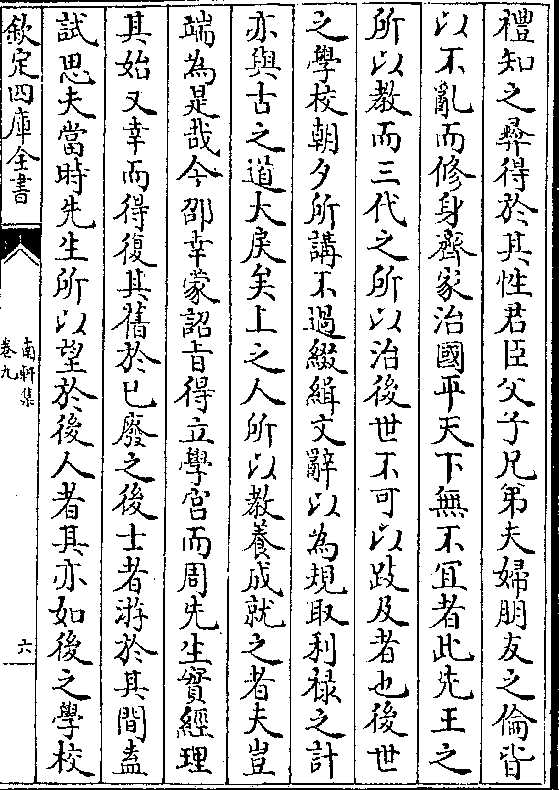 禮知之彛得於其性君臣父子兄弟夫婦朋友之倫皆
以不亂而修身齊家治國平天下無不宜者此先王之
所以教而三代之所以治後世不可以跂及者也後世
之學校朝夕所講不過綴緝文辭以為規取利祿之計
亦與古之道大戾矣上之人所以教養成就之者夫豈
端為是哉今邵幸蒙詔旨得立學宮而周先生實經理
其始又幸而得復其舊於已廢之後士者游於其間盍
試思夫當時先生所以望於後人者其亦如後之學校
欽定四庫全書
南軒集
卷九
六